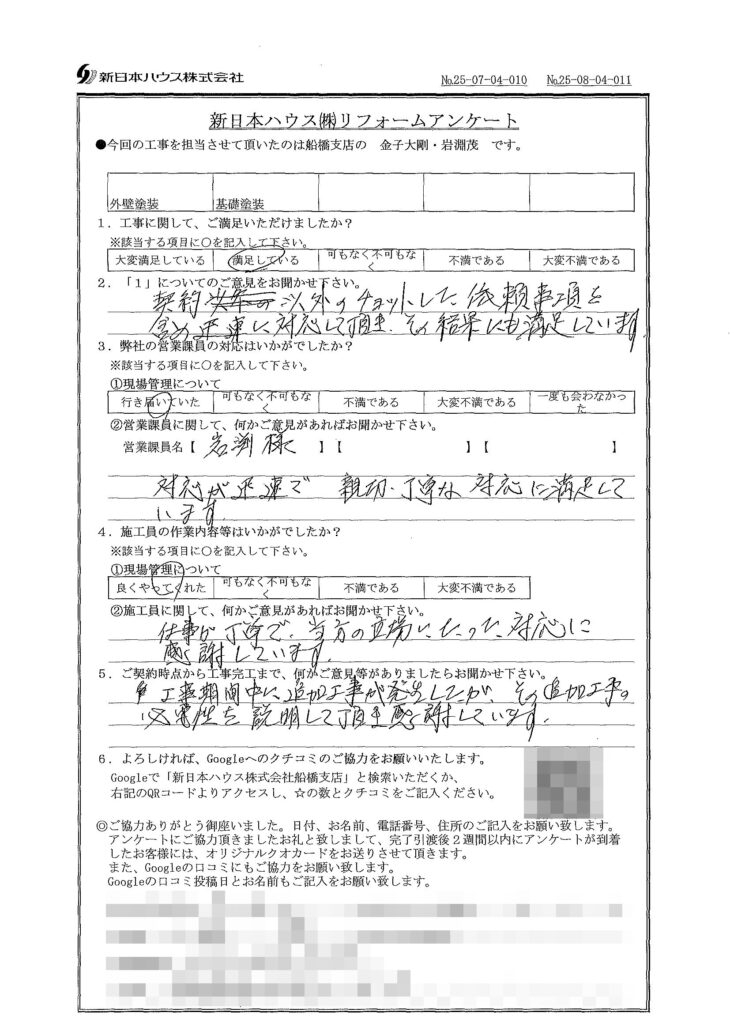 新日本ハウス株式会社
№25-07-04-010 №25-08-04-011
新日本ハウス㈱リフォームアンケート
●今回の工事を担当させて頂いたのは船橋支店の 金子大剛・岩淵茂 です。
外壁塗装 基礎塗装
1．工事に関して、ご満足いただけましたか？
※該当する項目に○を記入して下さい。
大変満足している 満足している 可もなく不可もなく 不満である 大変不満である
2．「1」についてのご意見をお聞かせ下さい。
契約 以外のチョットした依頼事項を
含め迅速に対応して頂き、その結果にも満足しています
3．弊社の営業課員の対応はいかがでしたか？
※該当する項目に○を記入して下さい。
①現場管理について
行き届いていた 可もなく不可もなく 不満である 大変不満である 一度も会わなかった
②営業課員に関して、何かご意見があればお聞かせ下さい。
営業課員名【 岩渕様 】【 】【 】
対応が迅速で 親切・丁寧な対応に満足して
います。
4．施工員の作業内容等はいかがでしたか？
※該当する項目に○を記入して下さい。
①現場管理について
良くやってくれた 可もなく不可もなく 不満である 大変不満である
②施工員に関して、何かご意見があればお聞かせ下さい。
仕事が丁寧で、当方の立場にたった対応に
感謝しています。
5．ご契約時点から工事完工まで、何かご意見等がありましたらお聞かせ下さい。
工事期間中に、追加工事が発生したが、その追加工事の
必要性を説明して頂き感謝しています。
6．よろしければ、Googleへのクチコミのご協力をお願いいたします。
Googleで「新日本ハウス株式会社船橋支店」と検索いただくか、
右記のQRコードよりアクセスし、☆の数とクチコミをご記入ください。
◎ご協力ありがとう御座いました。日付、お名前、電話番号、住所のご記入をお願い致します。
アンケートにご協力頂きましたお礼と致しまして、完了引渡後２週間以内にアンケートが到着
したお客様には、オリジナルクオカードをお送りさせて頂きます。
また、Googleの口コミにもご協力をお願い致します。
Googleの口コミ投稿日とお名前もご記入をお願い致します。